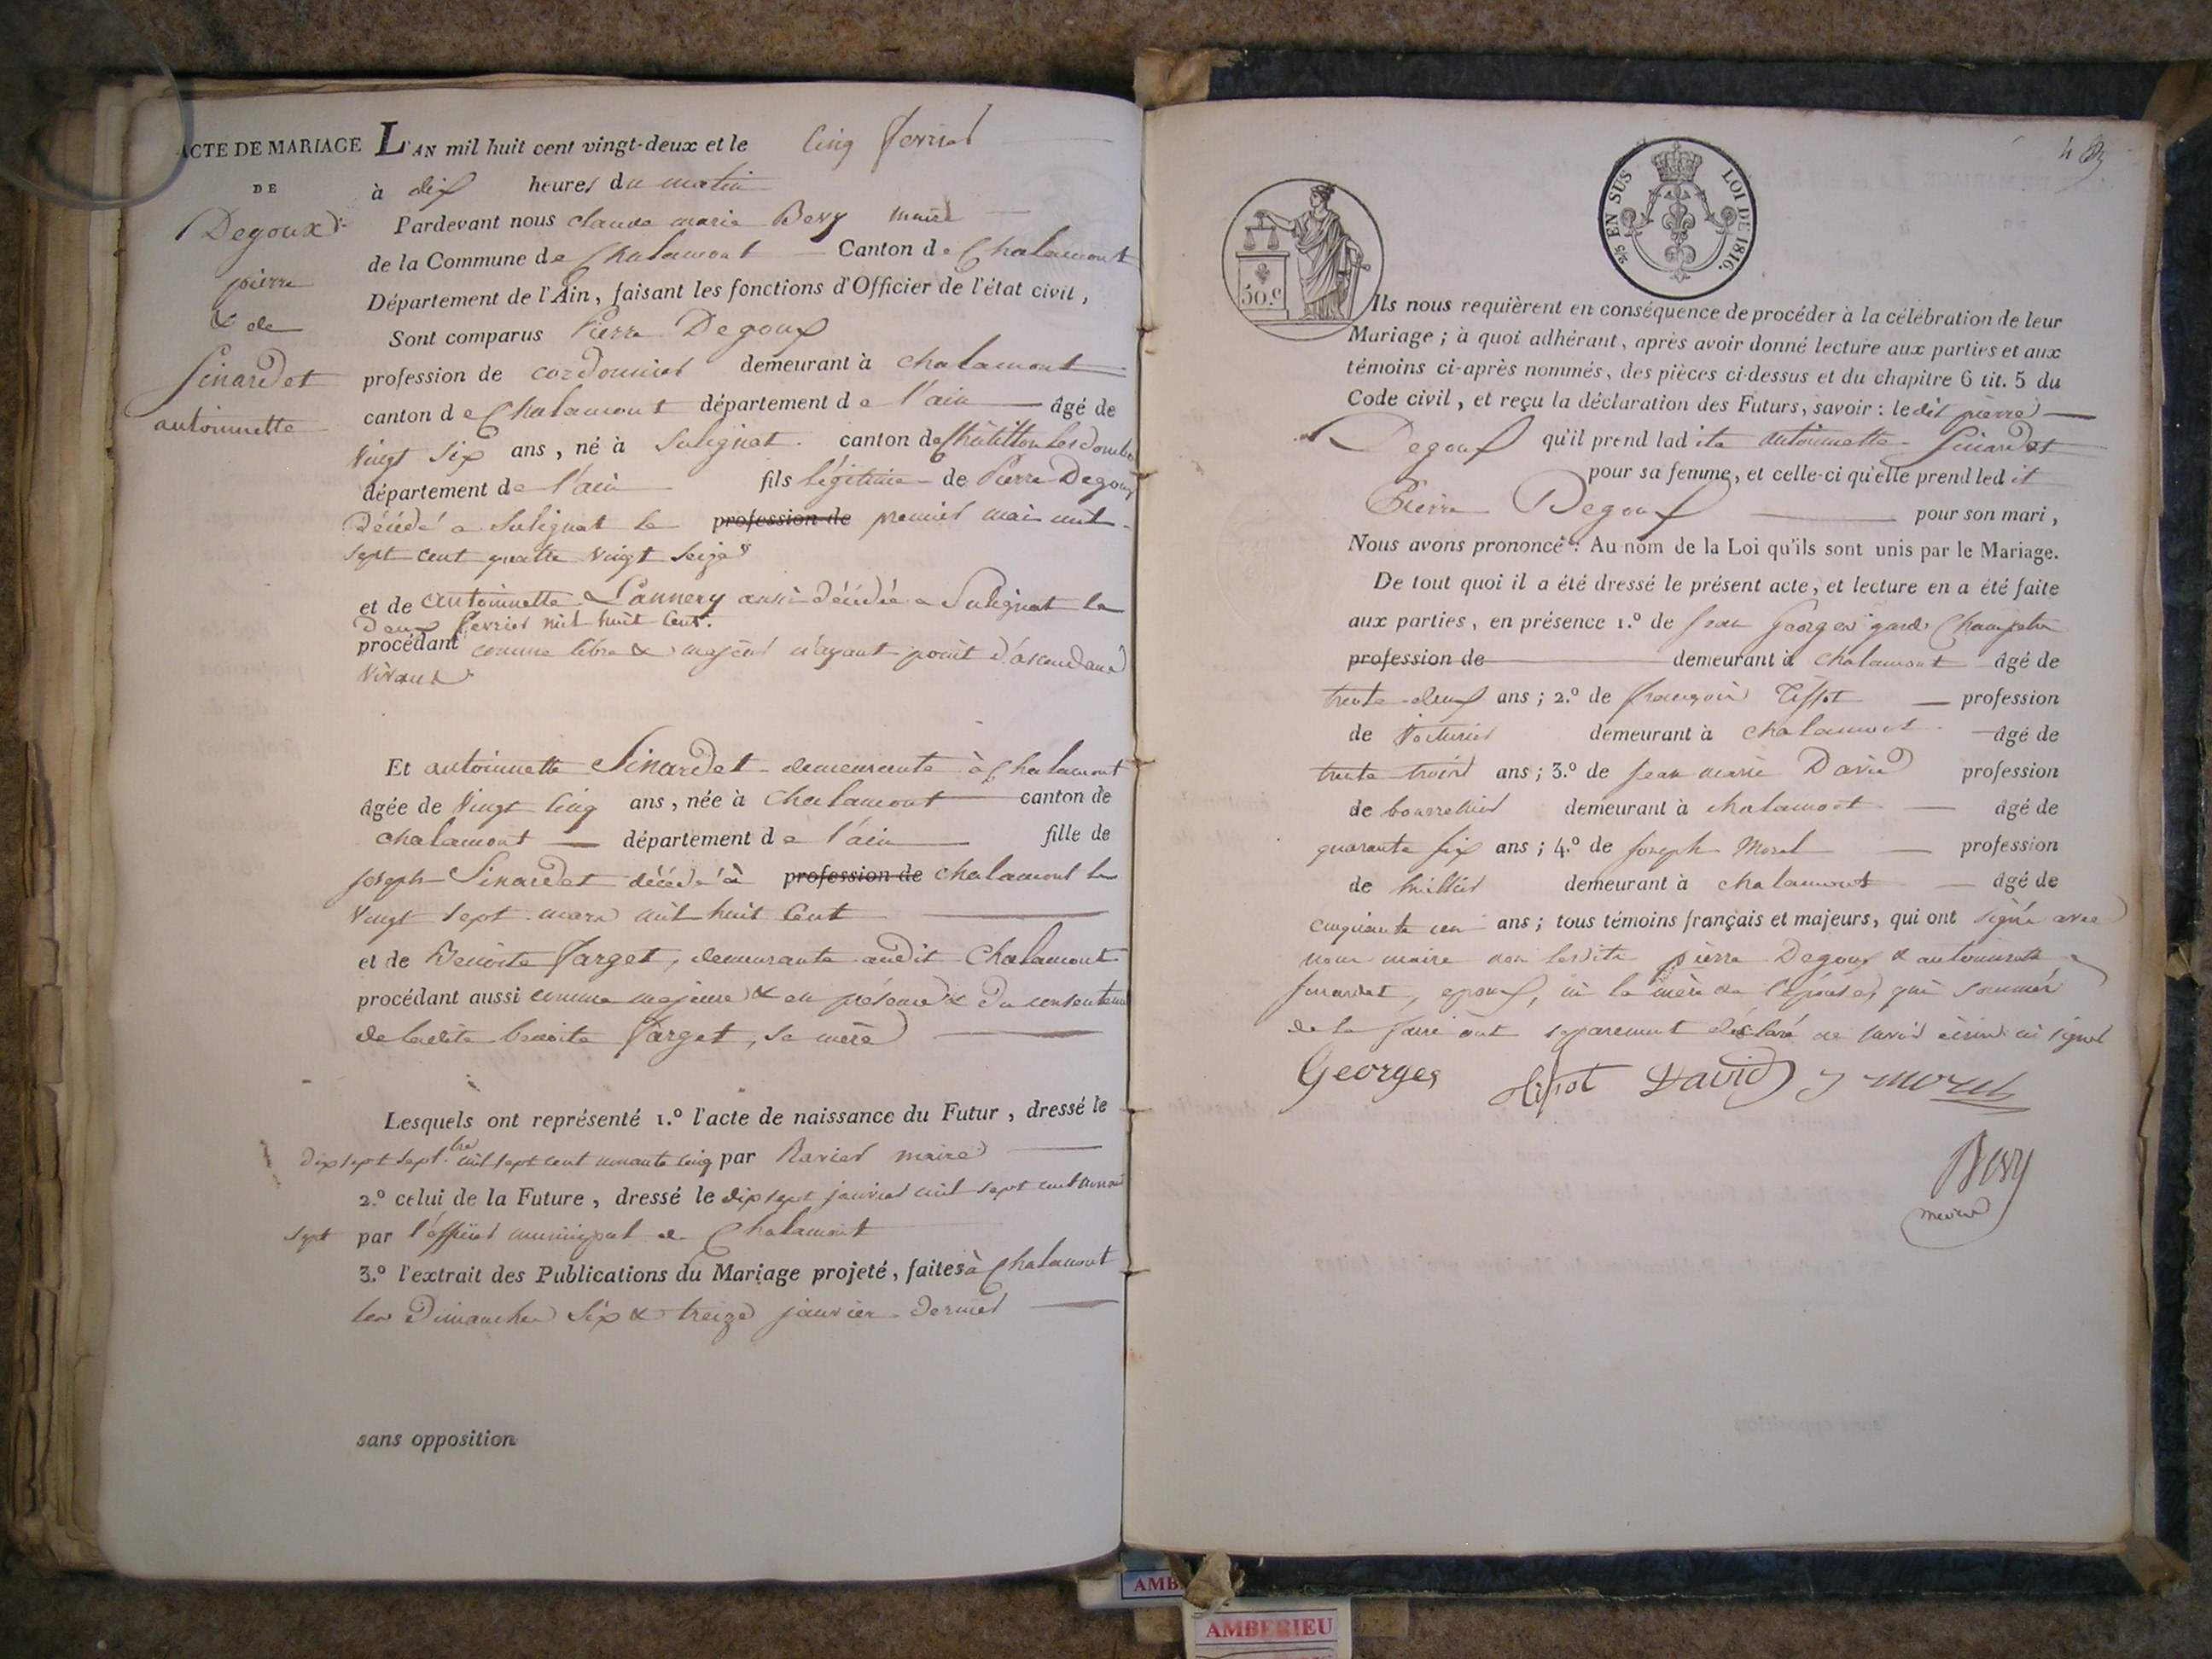 ACTE DE MARIAGE
DE
Degoux
pierre
& de
Sinardet
antoinette
L'AN mil huit cent vingt-deux et le Cinq fevrier
à dix heures du matin
Pardevant nous claude marie Bevy maire
de la Commune de Chalamont Canton de Chalamont
Département de l'Ain, faisant les fonctions d'Officier de l'état civil,
Sont comparus Pierre Degoux
profession de cordonnier demeurant à chalamont
canton de Chalamont département de l'ain âgé de
vingt six ans, né à Sulignat canton de Châtillon les dombes
département de l'ain fils légitime de Pierre Degoux
décédé a Sulignat le profession de premier mai mil
sept cent quatre vingt seize
et de antoinette Lannery aussi décédée a Sulignat le
deux fevrier mil huit cent.
procédant comme libre & majeur n'ayant point d'ascendant
vivant
Et antoinette Sinardet demeurante à Chalamont
âgée de vingt cinq ans, née à chalamont canton de
chalamont département de l'ain fille de
joseph Sinardet décédé à profession de chalamont le
vingt sept mars mil huit cent
et de Benoite farget, demeurante audit Chalamont
procédant aussi comme majeure & en présence & du consentement
de ladite benoite farget, sa mère
Lesquels ont représenté 1.º l'acte de naissance du Futur, dressé le
dix sept sept.bre mil sept cent nonante cinq par Ravier maire
2.º celui de la Future, dressé le dix sept janvier mil sept cent nonante
sept par l'officier municipal de Chalamont
3.º l'extrait des Publications du Mariage projeté, faites à Chalamont
les Dimanches six & treize janvier dernier
sans opposition
50.C
2/5 EN SUS LOI DE 1816.
Ils nous requièrent en conséquence de procéder à la célébration de leur
Mariage; à quoi adhérant, après avoir donné lecture aux parties et aux
témoins ci-après nommés, des pièces ci-dessus et du chapitre 6 tit. 5 du
Code civil, et reçu la déclaration des Futurs, savoir: ledit pierre
Degoux qu'il prend ladite antoinette Sinardet
pour sa femme, et celle-ci qu'elle prend ledit
Pierre Degoux pour son mari,
Nous avons prononcé: Au nom de la Loi qu'ils sont unis par le Mariage.
De tout quoi il a été dressé le présent acte, et lecture en a été faite
aux parties, en présence 1.º de Jean Georges garde Champetre
profession de demeurant à chalamont âgé de
trente deux ans; 2.º de françois Tissot profession
de voiturier demeurant à chalamont âgé de
trente trois ans; 3.º de Jean marie David profession
de bourrellier demeurant à chalamont âgé de
quarante six ans; 4.º de Joseph Morel profession
de demeurant à chalamont âgé de
cinquante un ans; tous témoins français et majeurs, qui ont signé avec
nous maire non lesdits pierre Degoux & antoinette
Sinardet, epoux, ni la mère de l'épouse, qui sommés
de le faire ont separement déclaré ne savoir écrire ni signer
Georges Tissot David J Morel
Bevy
maire
AMB
AMBERIEU